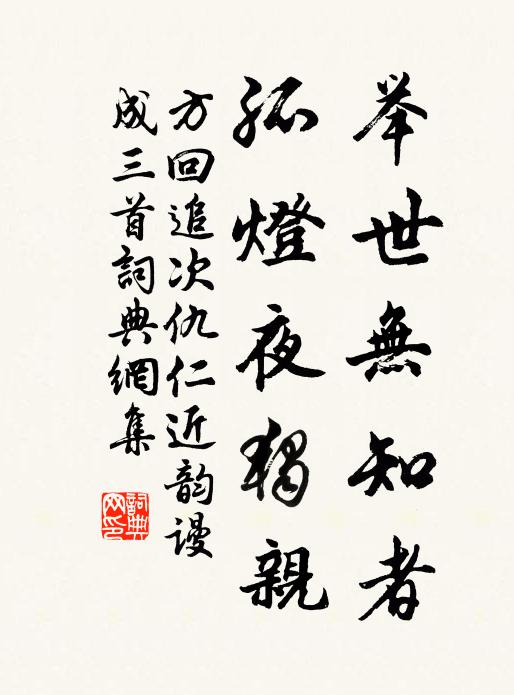 举世無知者
孤燈夜獨親
方回追次仇仁近韵谩
成三首詞典網集
詞典
网印